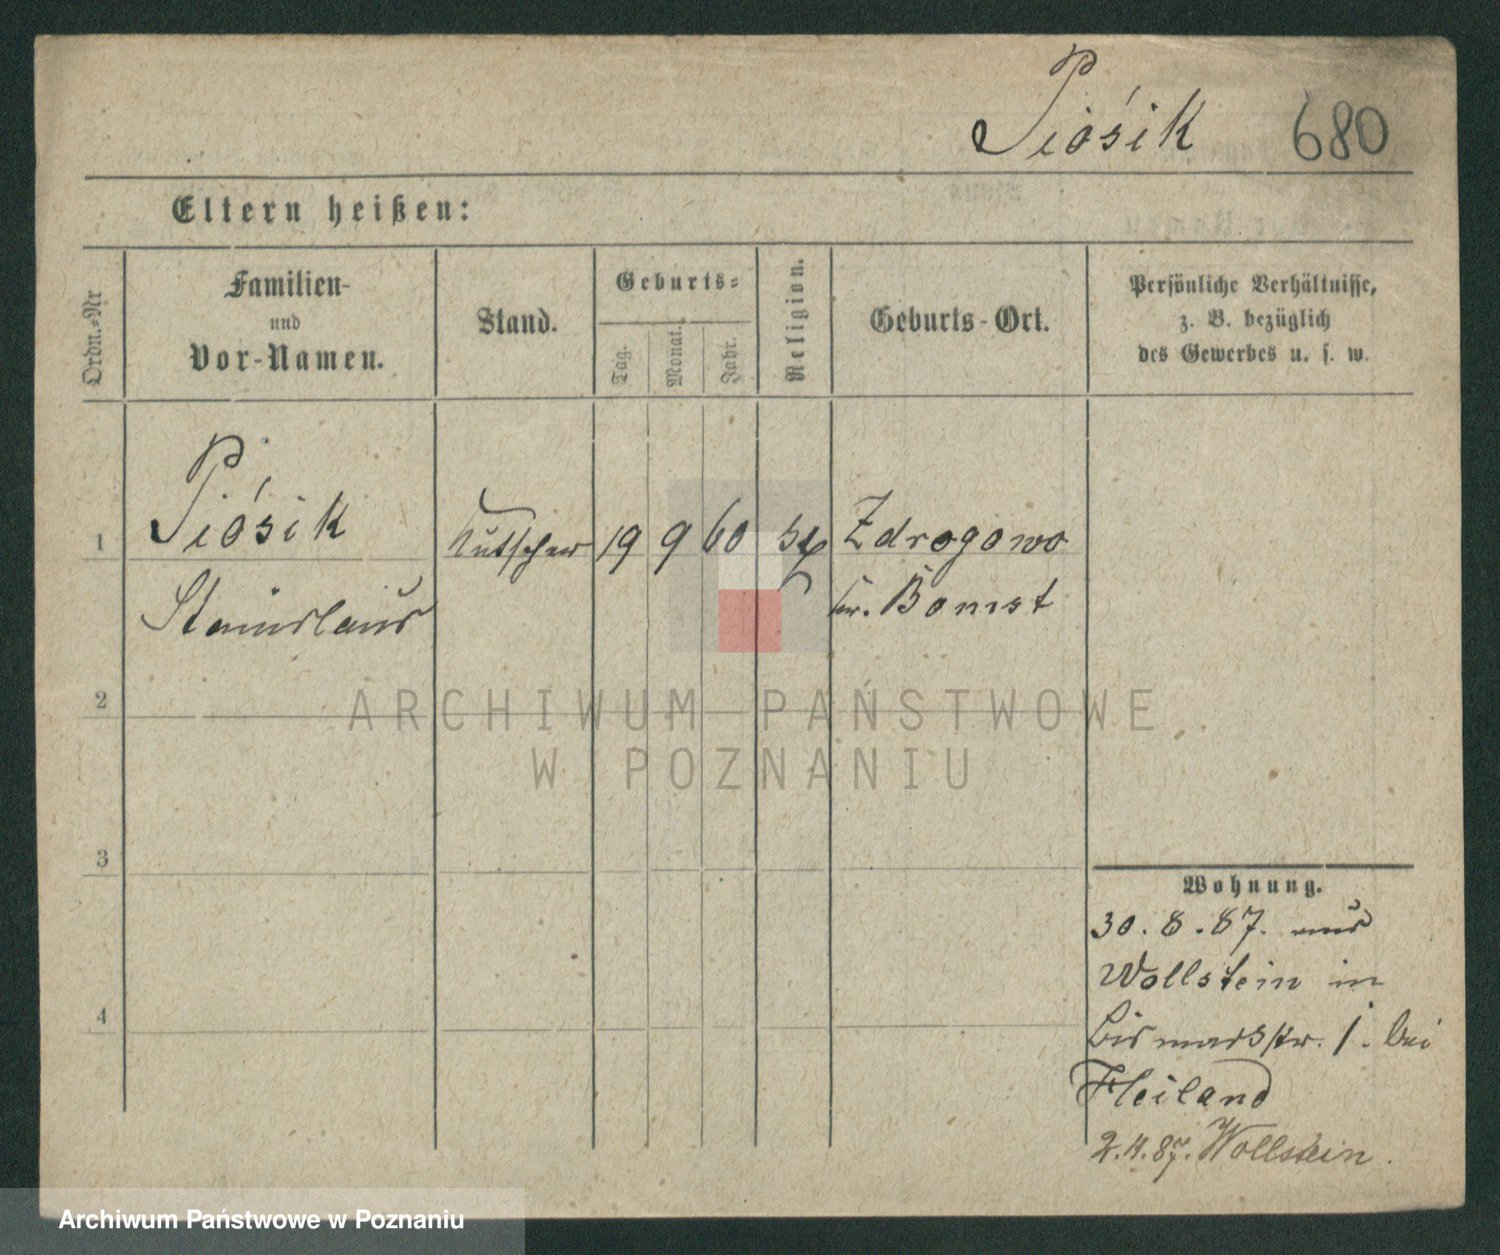 Piósik 680
Eltern heißen:
Ordn.-Nr
Familien-
und
Vor-Namen.
Stand.
Geburts-
Tag.
Monat.
Jahr.
Religion.
Geburts-Ort.
Persönliche Verhältnisse,
z. B. bezüglich
des Gewerbes u. s. w.
1 Piósik Kutscher 19 9 60 Zdrogowo
Stanislaus Kr. Bomst
2
ARCHIWUM PAŃSTWOWE
W POZNANIU
3
Wohnung.
30.8.87. aus
Wollstein in
Bismarckstr. 1. bei
Heiland
4
2.11.87. Wollstein.
Archiwum Państwowe w Poznaniu